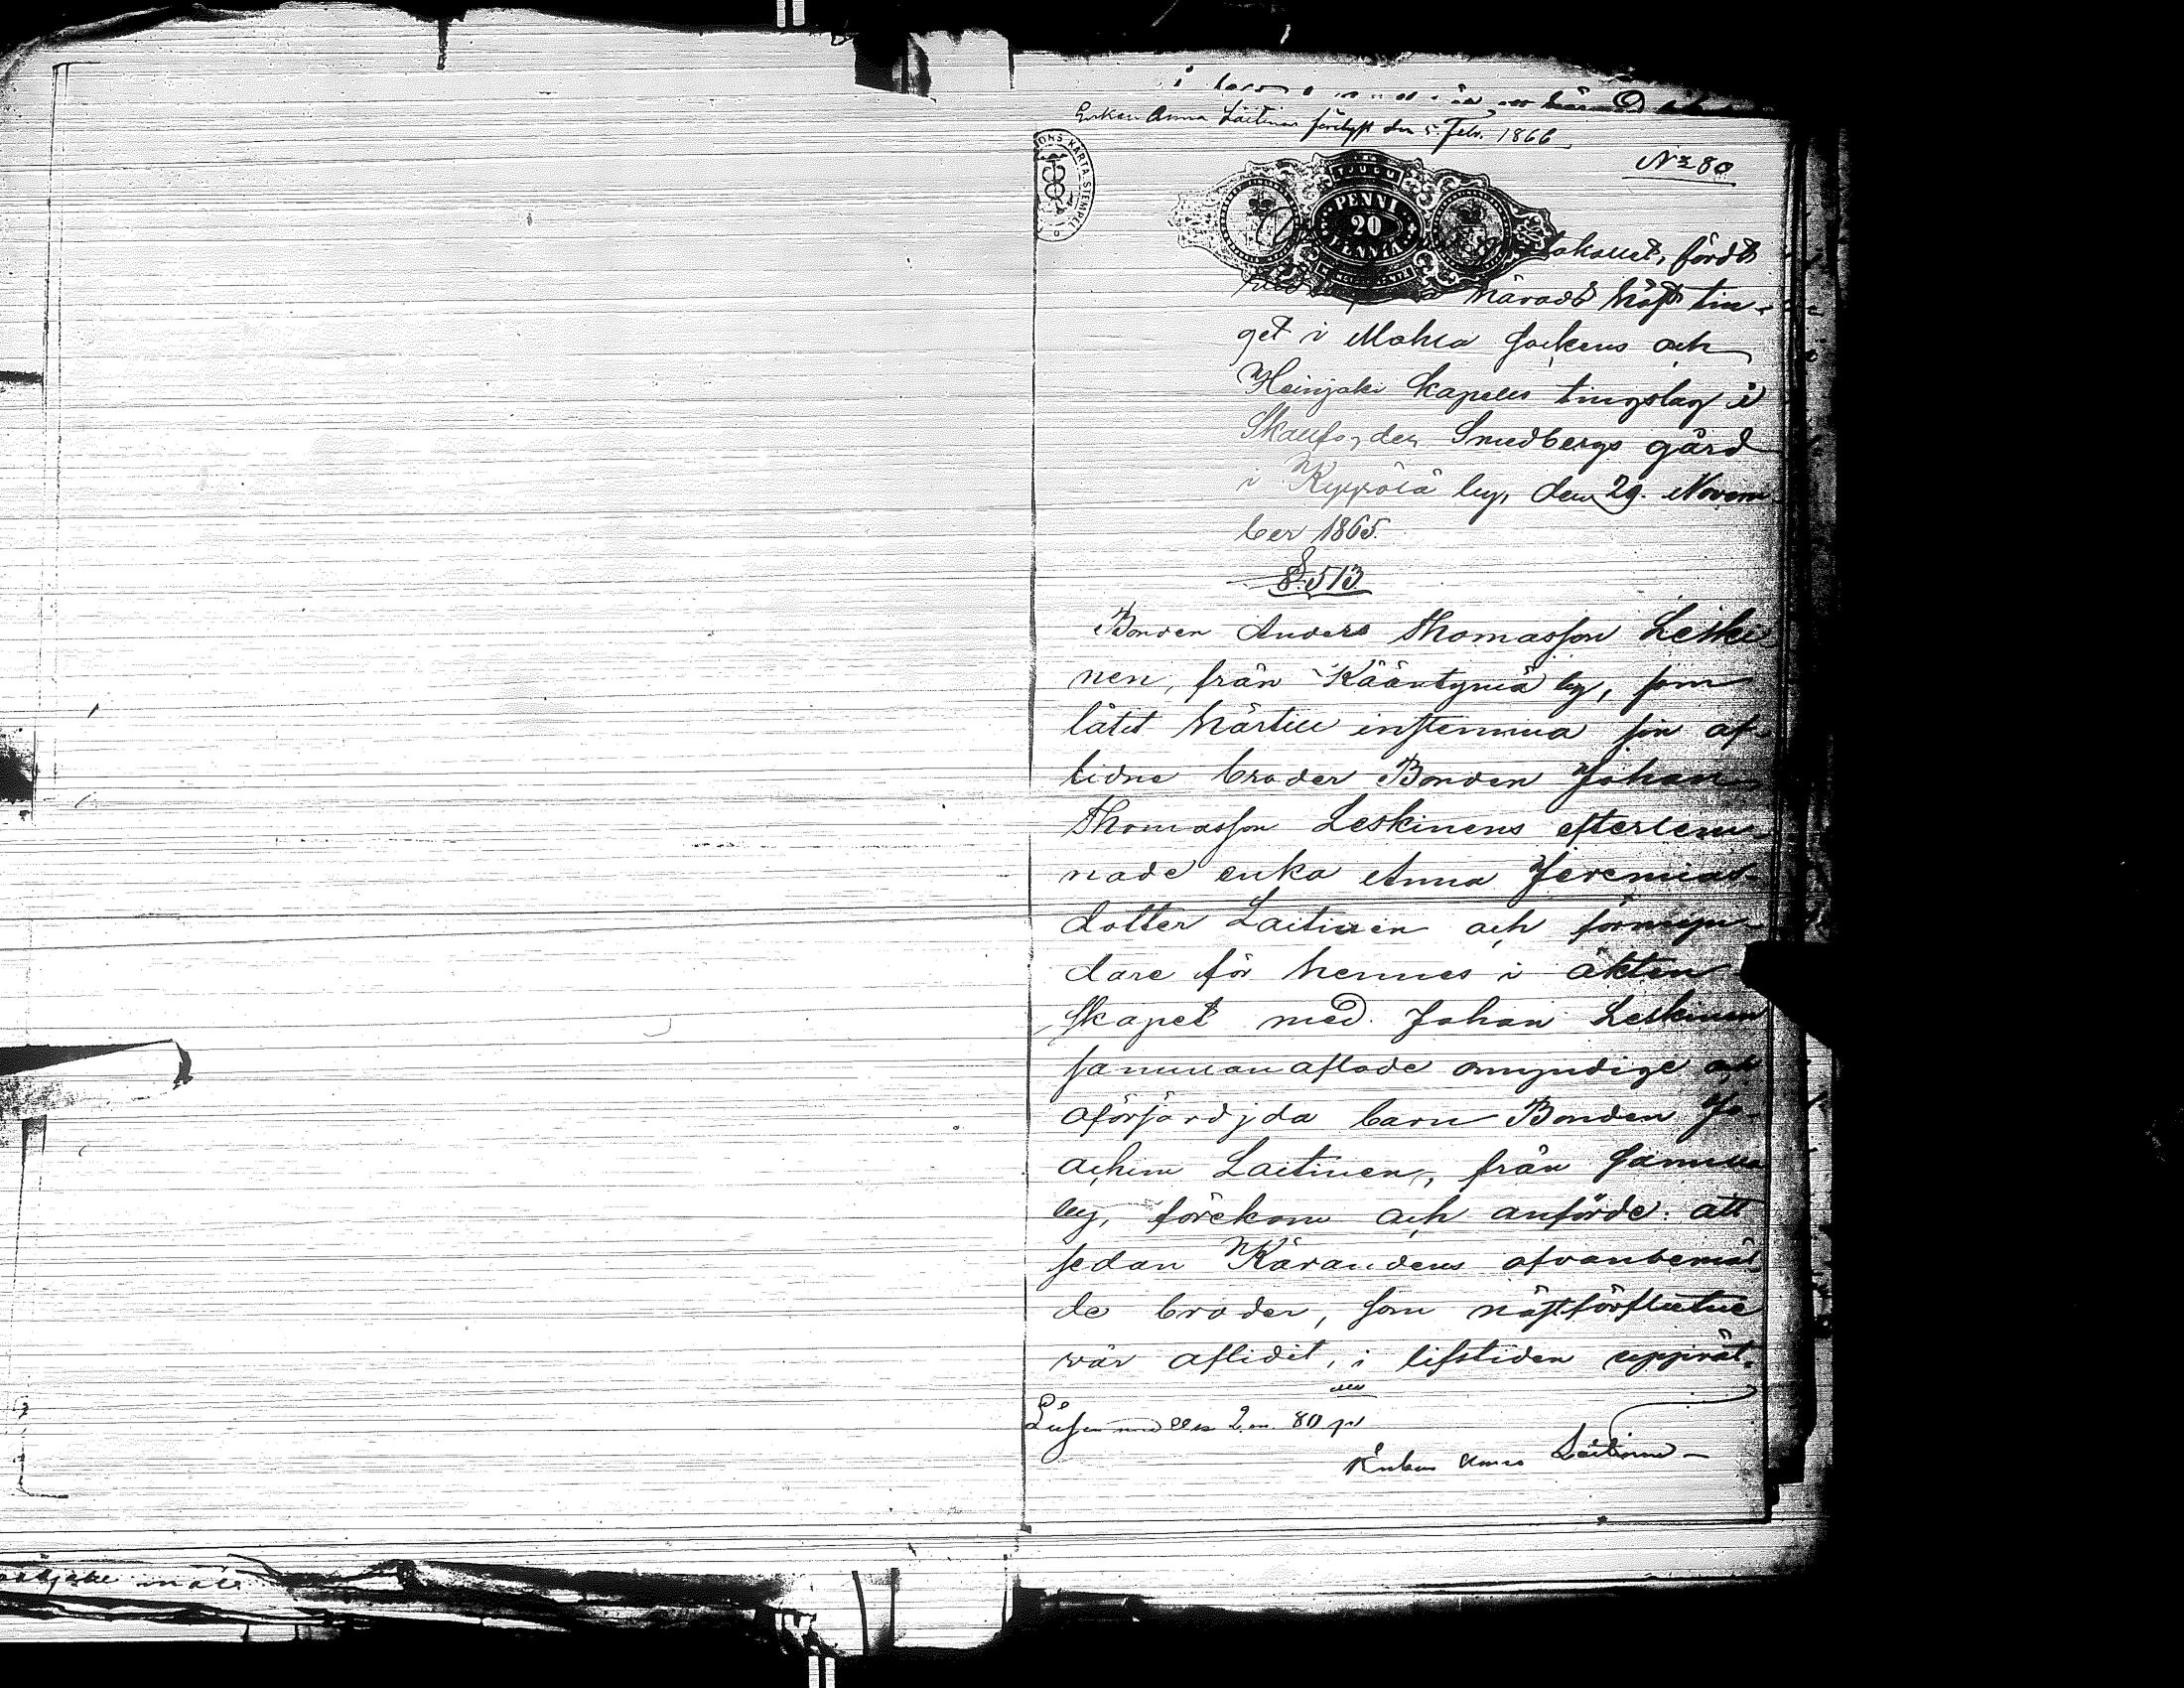 Enkan Anna Laitinen förelyft den 5. Febr. 1866
N:o 80
PENNI
20
fördt
härads hösttin-
get i Mohla Sockens och
Heinjoki kapells tingslag i
Skallfogden Smedbergs gård
i Kyyrölä by, den 29. Novem
ber 1865.
§. 513
Bonden Anders Thomasson Leski
nen, från Kääntymä by, som
låtit härtill instemma sin af-
lidne broder Bonden Johan
Thomasson Leskinens efterlem
nade enka Anna Jeremias
dotter Laitinen och förmyn
dare för hennes i äkten
skapet med Johan Leskinen
samman aflade omyndige och
oförsörjda barn Bonden Jo-
achim Laitinen, från
by, förekom och anförde: att
sedan Kärandens ofvanbemäl
de broder, som nästförflutne
vår aflidit, i lifstiden upprät-
Lösen med 2 m. 80 p:i
Enkan Anna Laitinen